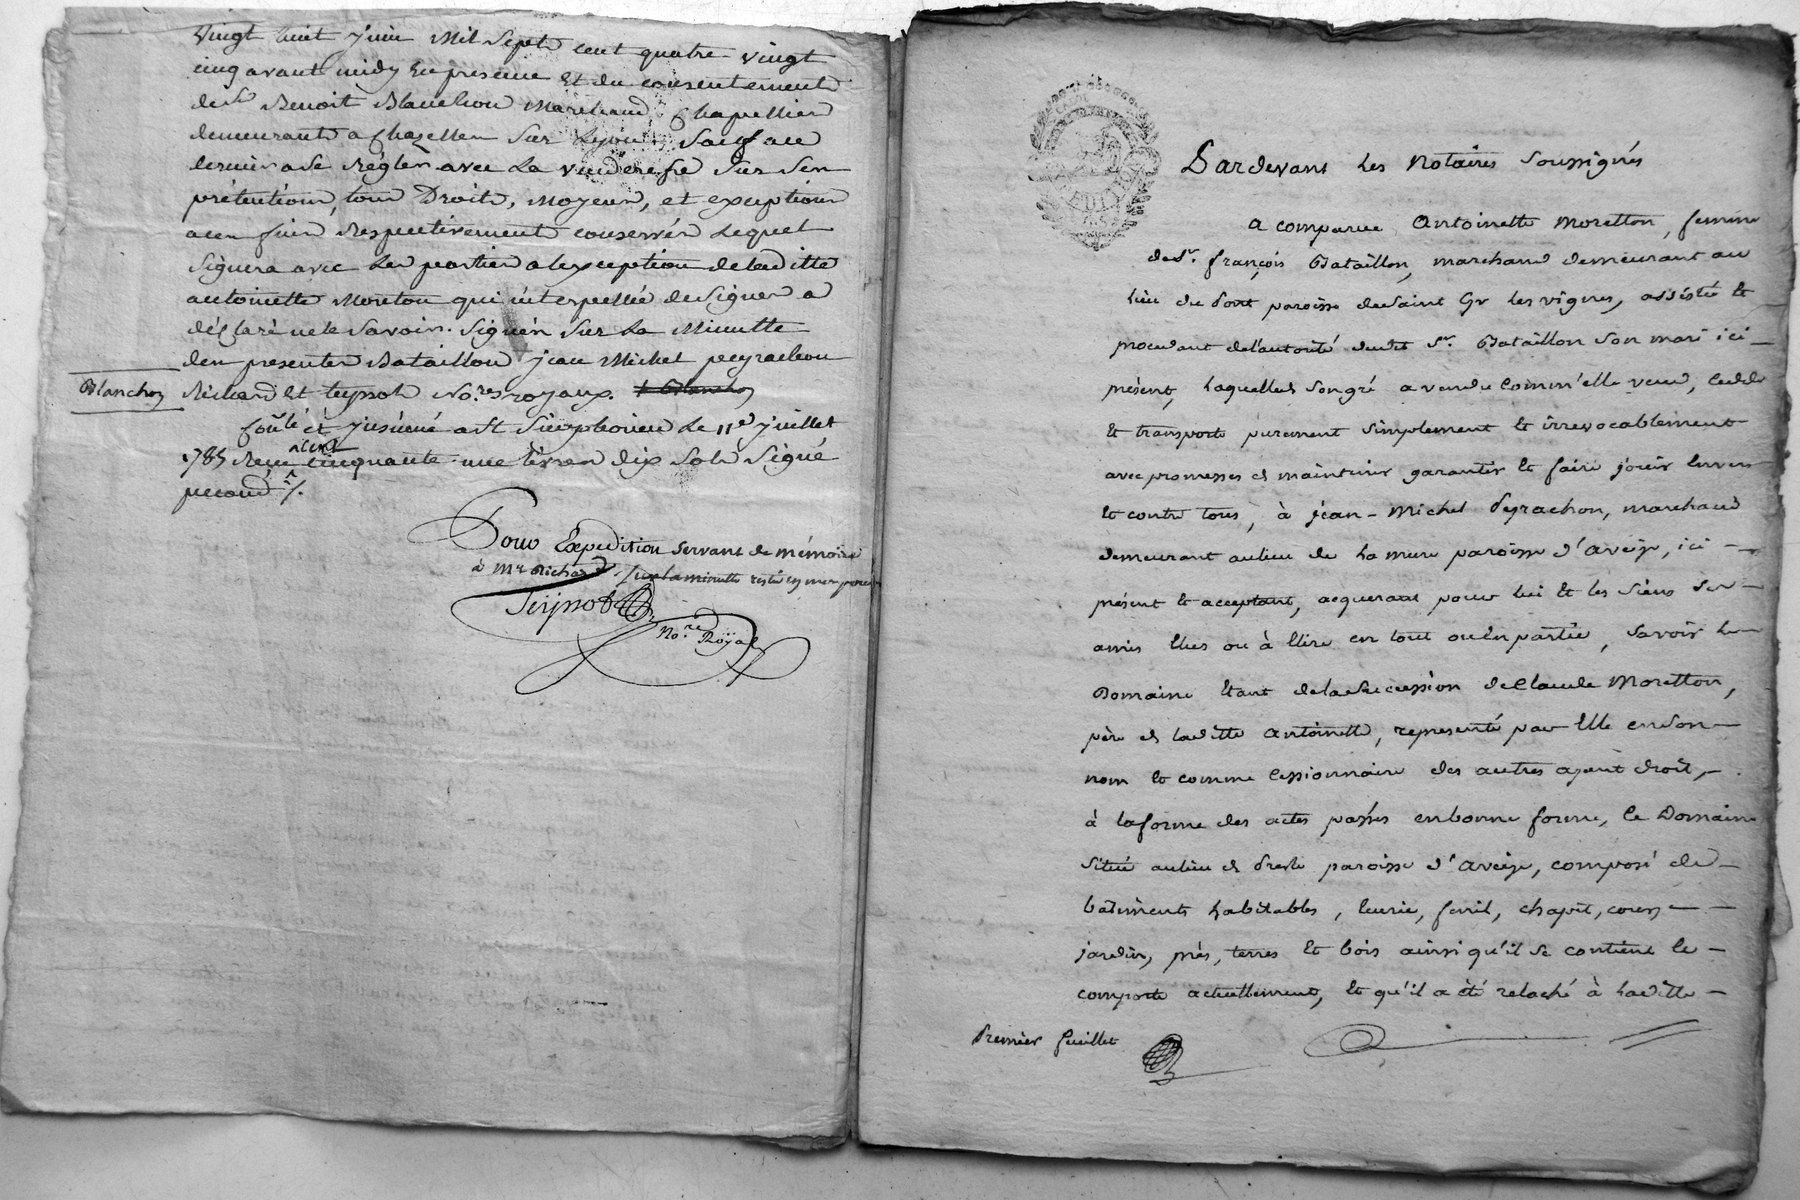 Vingt huit juin Mil Sept cent quatre vingt
cinq avant midy En presence Et du consentement
de Sr Benoit Blanchon Marchand Chapellier
demeurant a Chazelles sur Lyon, Sauf a ce
dernier a se Régler avec La venderesse sur Ses
prétentions, tous Droits, Moyens, et exceptions
a ces fins Respectivement conservés Lequel
Signera avec Les parties a lexception de laditte
antoinette Moretton qui interpellée de Signer a
déclaré ne le savoir. Signés Sur La Minutte
des presentes Bataillon jean Michel peyrachon
Blanchon
Richard Et teyssot No.res royaux.
Coñlé et jnsinué a St Simphorien Le 11e juillet
1785 Reçu cinquante une livres dix Sols Signé
Pour Expedition servant de mémoire
à Mr Richard Sur la minutte resté en mon pouvoir
Teyssot
No.re Royal
Pardevant Les Notaires Soussignés
A comparue Antoinette Moretton, femme
de Sr. françois Bataillon, marchand demeurant au
lieu du pont paroisse de Saint Gr les vignes, assistée Et
procedant de l'autorité dudit Sr. Bataillon Son mari ici
présent, Laquelle de son gré a vendu Comm'elle vend, Cedde
Et transporte purement Simplement Et irrevocablement
avec promesses de maintenir garantir Et faire jouir Envers
Et contre tous, à jean-Michel Peyrachon, marchand
demeurant au lieu de La mure paroisse d'aveize, ici
présent Et acceptant, acquerant pour Lui Et les Siens Ses
amis Elus ou à Elire en tout ou En partie, Savoir Le
Domaine Etant de la Succession de Claude Moretton,
père de Laditte Antoinette, representé par Elle en son
nom Et comme Cessionnaire des autres ayant droit,
à la forme des actes passés en bonne forme, Ce Domaine
Situé au lieu de paroisse d'Aveize, composé de
bâtiments habitables, Ecurie, fenil, chapit, cour,
jardin, prés, terres Et bois ainsi qu'il Se contient Se
comporte actuellement, Et qu'il a été relaché à Laditte
Premier feuillet